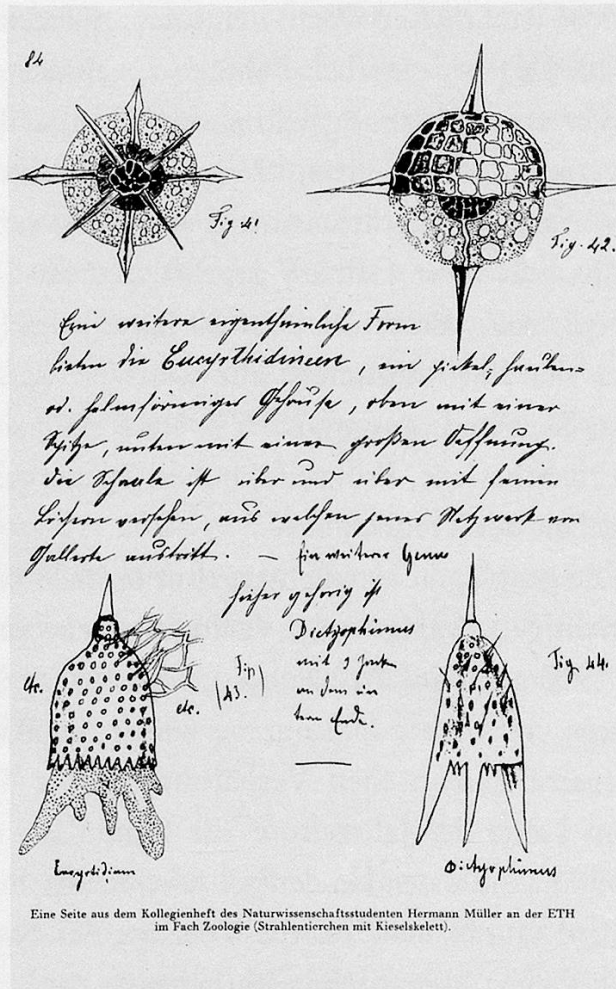 84
Fig 41.
Fig. 42.
Eine weitere eigenthümliche Form
bieten die Eucyrthidineen, ein pickel-, hauben-
od. helmförmiges Gehäuse, oben mit einer
Spitze, unten mit einer großen Oeffnung.
Die Schaale ist über und über mit feinen
Löchern versehen, aus welchen jenes Netzwerk von
Gallerte austritt. — Ein weiteres Genus
hieher gehörig ist
Dictyophimus
mit 3 Zack
an dem un
tern Ende.
etc.
etc.
Fig.
(43.)
Fig. 44.
Eucyrtidium
Dictyophimus
Eine Seite aus dem Kollegienheft des Naturwissenschaftsstudenten Hermann Müller an der ETH
im Fach Zoologie (Strahlentierchen mit Kieselskelett).